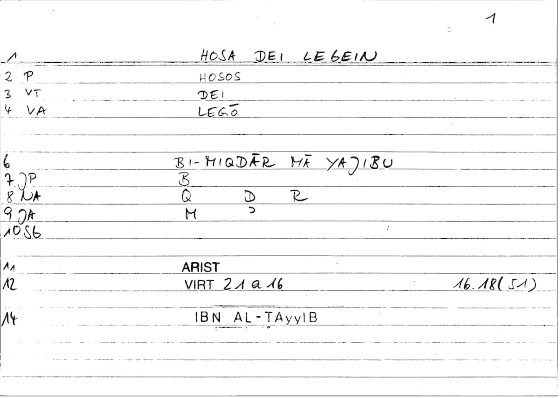 1
1 HOSA DEI LEGEIN
2 P HOSOS
3 VT DEI
4 VA LEGŌ
6 BI-MIQDĀR MĀ YAJIBU
7 JP B
8 NA Q D R
9 JA M ʾ
10 SB
11 ARIST
12 VIRT 21 a 16 16.18(51)
14 IBN AL-ṬAyyIB